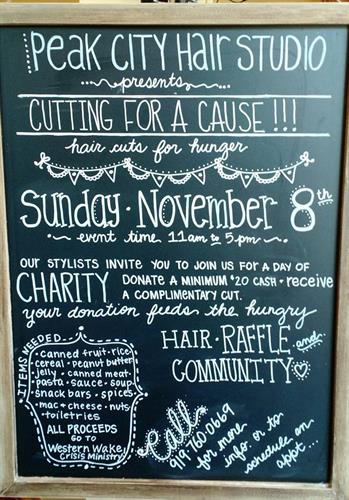 Peak City Hair Studio
presents
CUTTING FOR A CAUSE !!!
hair cuts for hunger
Sunday · November 8th
event time 11am to 5pm
OUR STYLISTS INVITE YOU TO JOIN US FOR A DAY OF
CHARITY DONATE A MINIMUM $20 CASH · receive
A COMPLIMENTARY CUT.
your donation feeds the hungry
HAIR · RAFFLE and
COMMUNITY
ITEMS NEEDED
· canned fruit · rice
cereal · peanut butter
jelly · canned meat
pasta · sauce · soup
snack bars · spices
mac & cheese · nuts
· toiletries
ALL PROCEEDS
GO TO
Western Wake
Crisis Ministry
call
919·760·0669
for more
info or to
schedule an
appt...